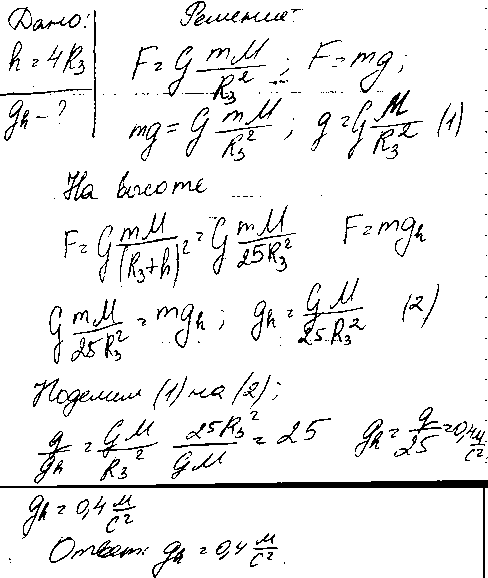 Дано: Решение:
h = 4R₃ F = G mM/R₃²; F = mg;
gₕ - ? mg = G mM/R₃²; g = G M/R₃² (1)
На высоте
F = G mM/(R₃+h)² = G mM/25R₃² F = mgₕ
G mM/25R₃² = mgₕ; gₕ = GM/25R₃² (2)
Поделим (1) на (2);
g/gₕ = GM/R₃² 25R₃²/GM = 25 gₕ = g/25 = 0,4 м/с²
gₕ = 0,4 м/с²
Ответ: gₕ = 0,4 м/с².